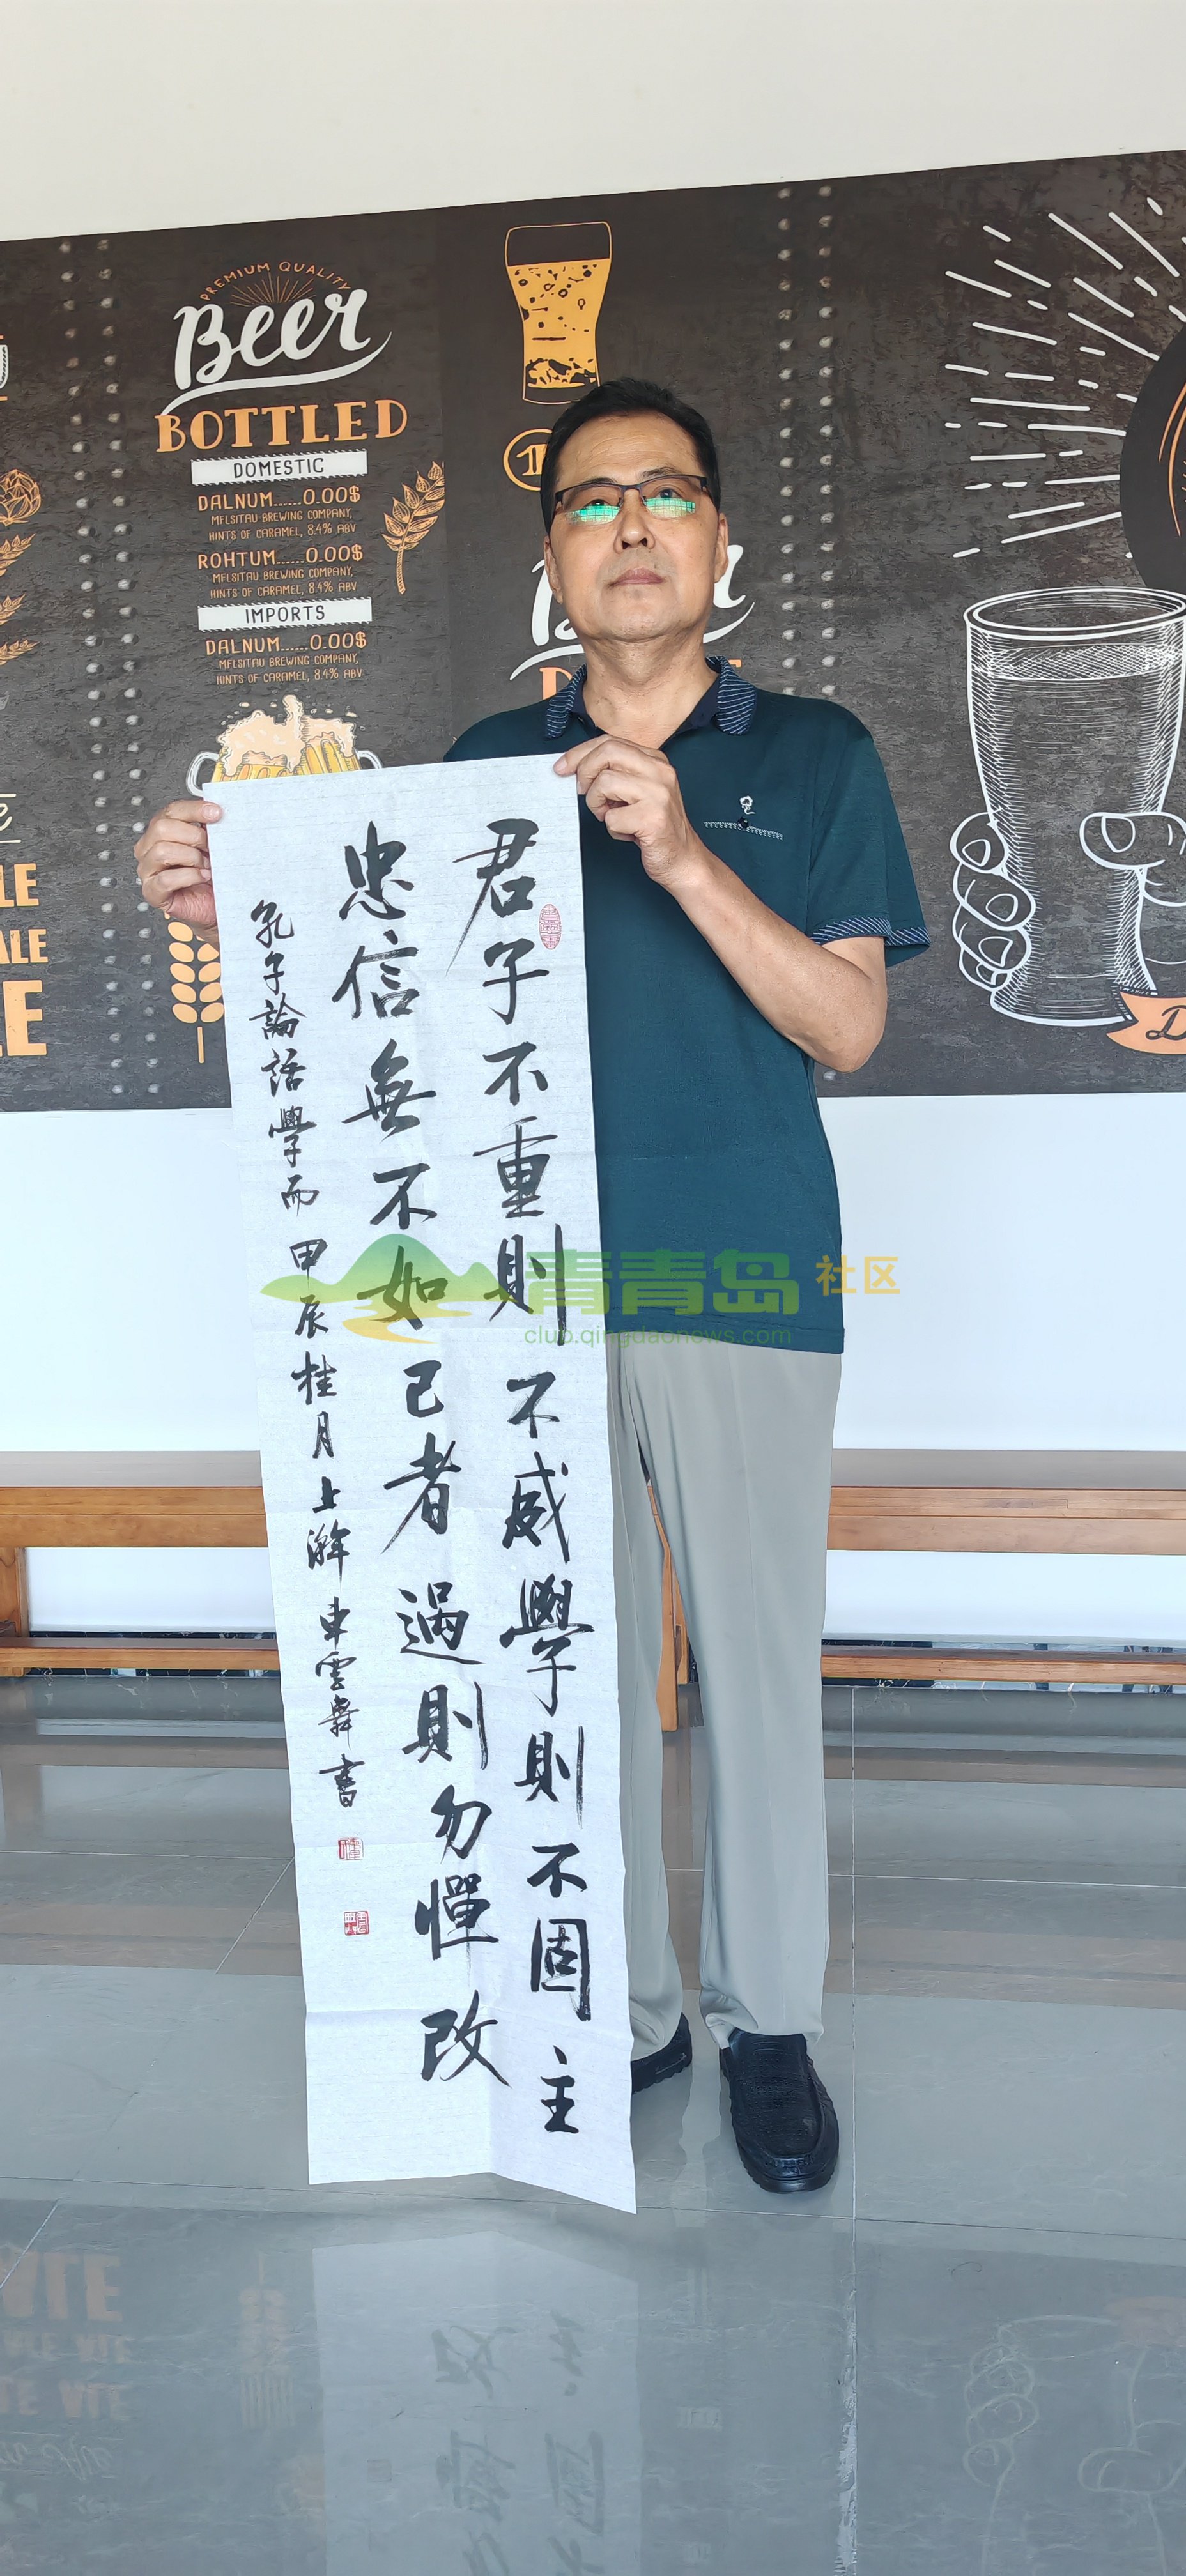 君子不重則不威學則不固主
忠信無不如己者過則勿憚改
孔子論語學而 甲辰桂月上澣 車雲舜書
PREMIUM QUALITY
Beer
BOTTLED
DOMESTIC
DALNUM......0.00$
MFLSITAU BREWING COMPANY,
HINTS OF CARAMEL, 8.4% ABV
ROHTUM......0.00$
MFLSITAU BREWING COMPANY,
HINTS OF CARAMEL, 8.4% ABV
IMPORTS
DALNUM......0.00$
MFLSITAU BREWING COMPANY,
HINTS OF CARAMEL, 8.4% ABV
青青岛社区
club.qingdaonews.com